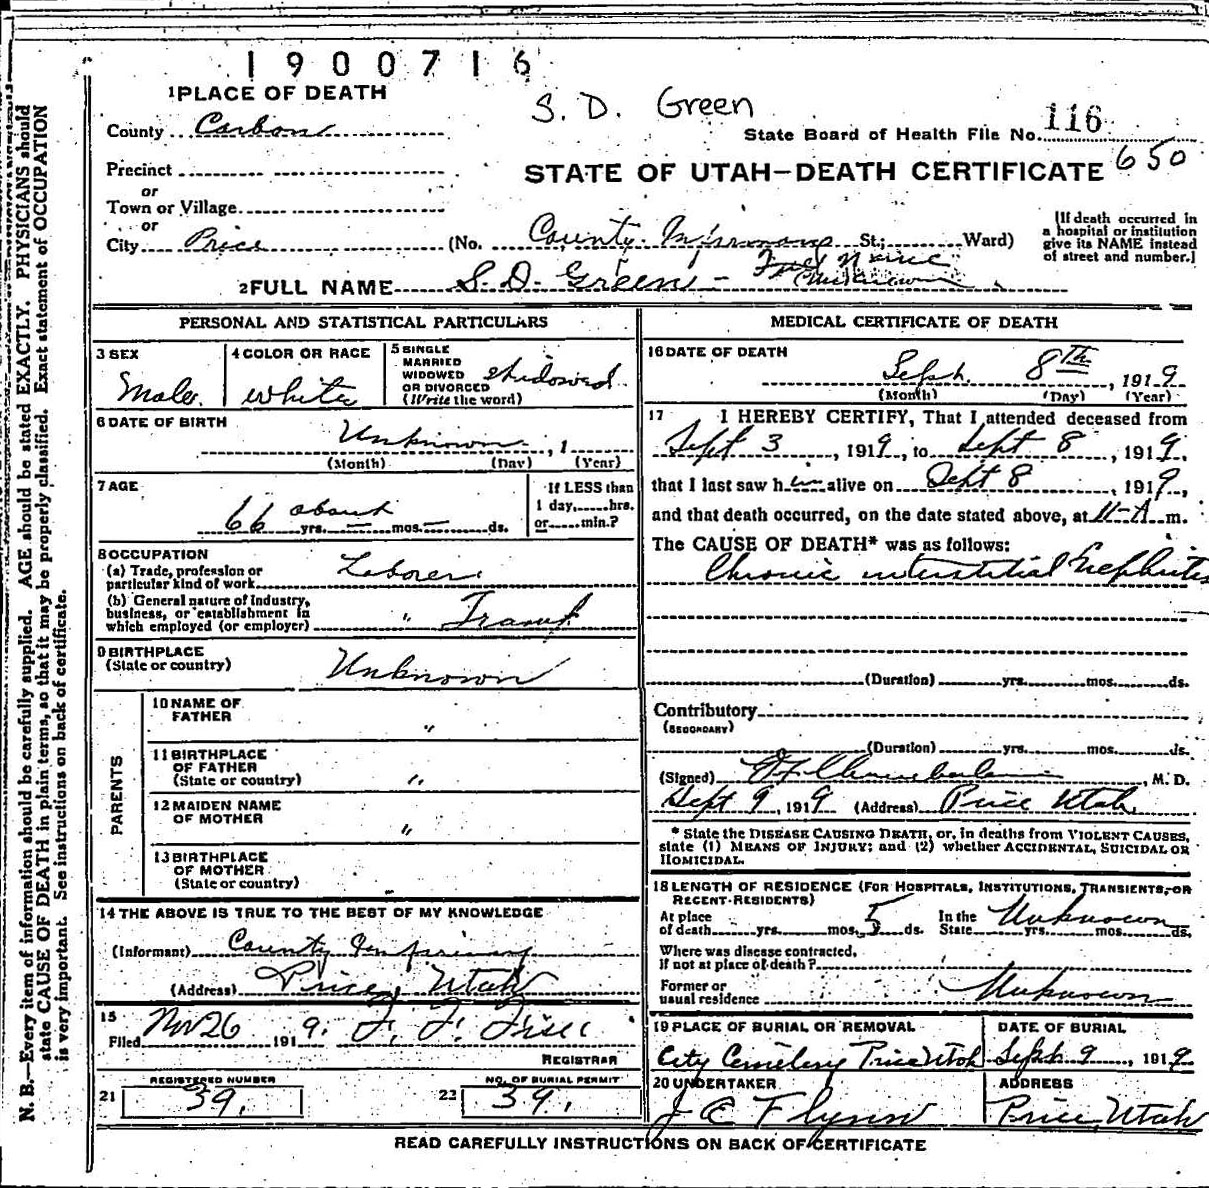 1900716
1 PLACE OF DEATH
S. D. Green
County Carbon
State Board of Health File No. 116
Precinct
STATE OF UTAH—DEATH CERTIFICATE 650
or
Town or Village
or
City Price (No. County Infirmary St.; Ward)
(If death occurred in
a hospital or institution
give its NAME instead
of street and number.)
2 FULL NAME S. D. Green - Full Name
Unknown
PERSONAL AND STATISTICAL PARTICULARS
3 SEX
Male.
4 COLOR OR RACE
white
5 SINGLE
MARRIED
WIDOWED
OR DIVORCED
(Write the word)
Widowed
6 DATE OF BIRTH
Unknown, 1
(Month) (Day) (Year)
7 AGE
about
66 yrs. — mos. — ds.
If LESS than
1 day, hrs.
or min.?
8 OCCUPATION
(a) Trade, profession or
particular kind of work Laborer
(b) General nature of industry,
business, or establishment in
which employed (or employer) " Tramp
9 BIRTHPLACE
(State or country) Unknown
PARENTS
10 NAME OF
FATHER "
11 BIRTHPLACE
OF FATHER
(State or country) "
12 MAIDEN NAME
OF MOTHER "
13 BIRTHPLACE
OF MOTHER
(State or country)
14 THE ABOVE IS TRUE TO THE BEST OF MY KNOWLEDGE
(Informant) County Infirmary
(Address) Price, Utah
15
Filed Nov 26 1919.
REGISTRAR
21 REGISTERED NUMBER
39.
22 NO. OF BURIAL PERMIT
39.
MEDICAL CERTIFICATE OF DEATH
16 DATE OF DEATH
Sept. 8th, 1919
(Month) (Day) (Year)
17 I HEREBY CERTIFY, That I attended deceased from
Sept 3, 1919, to Sept 8, 1919.
that I last saw him alive on Sept 8, 1919,
and that death occurred, on the date stated above, at 11-A m.
The CAUSE OF DEATH* was as follows:
Chronic interstitial Nephritis
(Duration) yrs. mos. ds.
Contributory
(SECONDARY)
(Duration) yrs. mos. ds.
(Signed) Chamberlain, M. D.
Sept 9, 1919 (Address) Price Utah.
* State the DISEASE CAUSING DEATH, or, in deaths from VIOLENT CAUSES,
state (1) MEANS OF INJURY; and (2) whether ACCIDENTAL, SUICIDAL OR
HOMICIDAL.
18 LENGTH OF RESIDENCE (FOR HOSPITALS, INSTITUTIONS, TRANSIENTS, OR
RECENT RESIDENTS)
At place
of death yrs. mos. 5 ds.
In the
State Unknown yrs. mos. ds.
Where was disease contracted,
if not at place of death?
Former or
usual residence Unknown
19 PLACE OF BURIAL OR REMOVAL
City Cemetery Price Utah
DATE OF BURIAL
Sept. 9, 1919
20 UNDERTAKER
J E Flynn
ADDRESS
Price, Utah
READ CAREFULLY INSTRUCTIONS ON BACK OF CERTIFICATE
N. B.—Every item of information should be carefully supplied. AGE should be stated EXACTLY. PHYSICIANS should
state CAUSE OF DEATH in plain terms, so that it may be properly classified. Exact statement of OCCUPATION
is very important. See instructions on back of certificate.